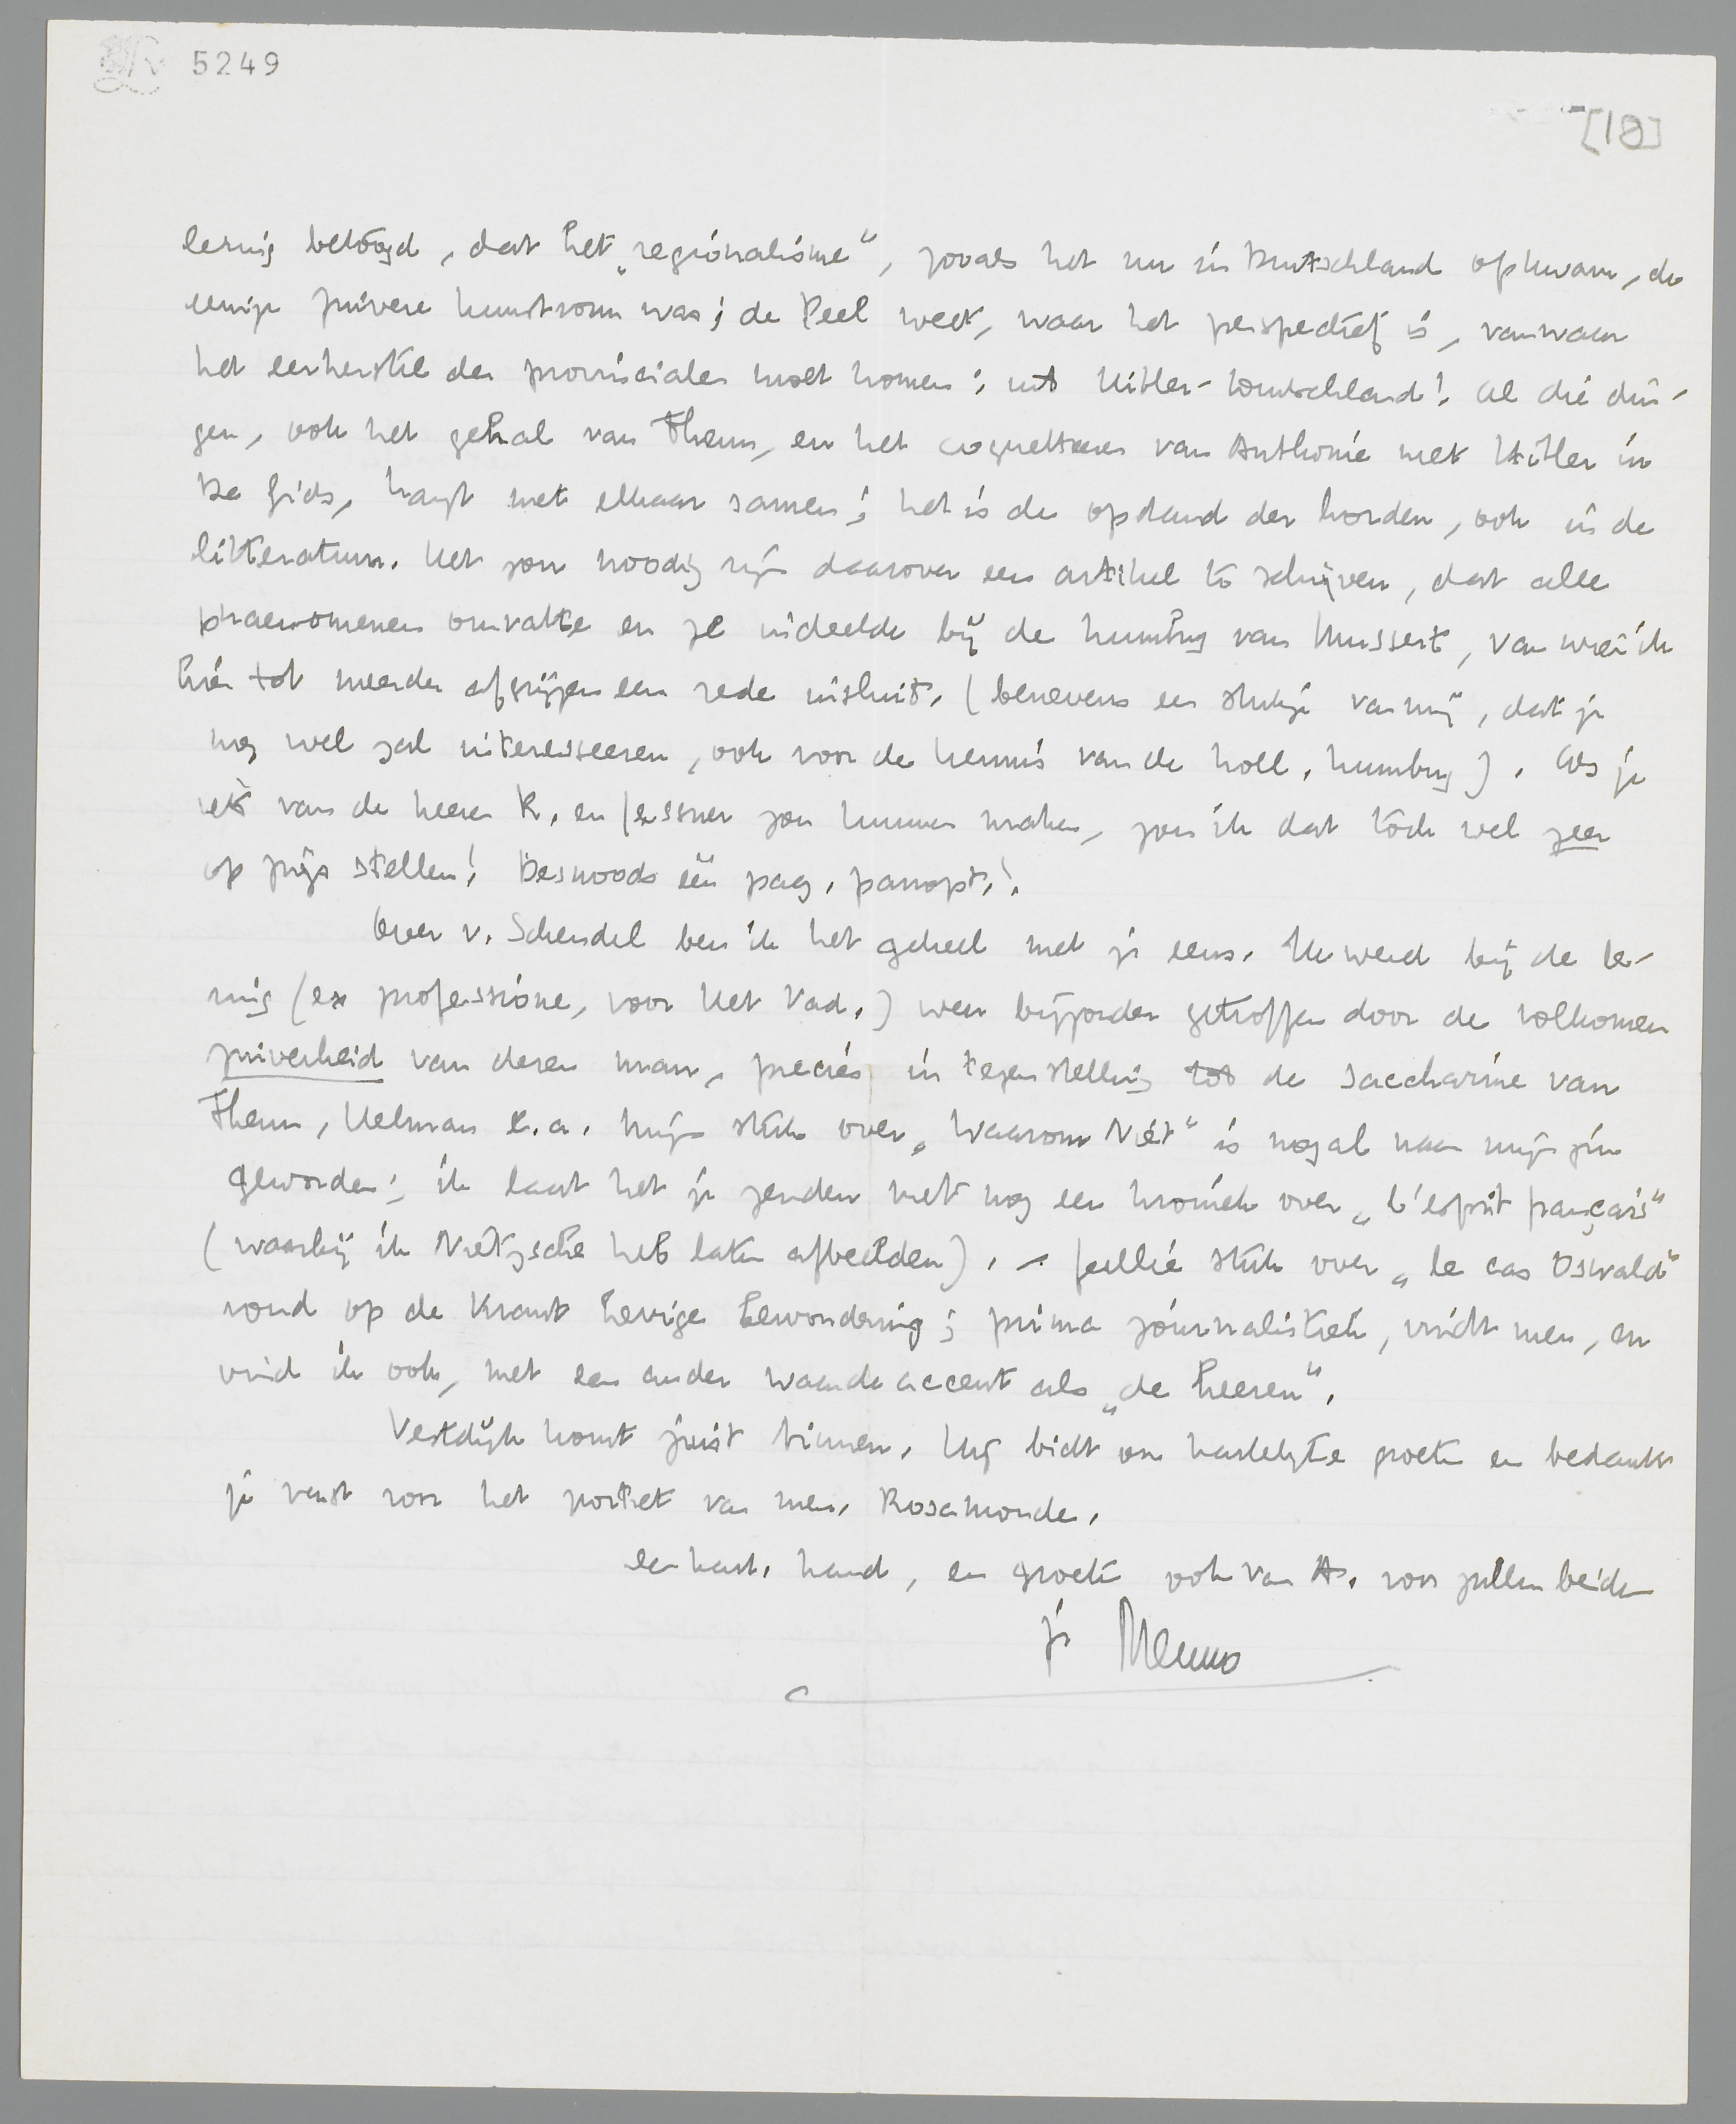 5249
[10]
lezing betoogd, dat het „regionalisme", zooals het nu in Duitschland opkwam, de
eenige zuivere kunstvorm was; de Peel weet, waar het perspectief is, vanwaar
het eerherstel der provincialen moet komen: uit Hitler-Duitschland! Al die din-
gen, ook het gehal van Theun, en het coquetteeren van Anthonie met Hitler in
De Gids, hangt met elkaar samen; het is de opstand der horden, ook in de
litteratuur. Het zou noodig zijn daarover een artikel te schrijven, dat alle
phaenomenen omvatte en ze indeelde bij de humbug van Mussert, van wie ik
hier tot meerder afgrijzen een rede insluit. (benevens een stukje van mij, dat je
nog wel zal interesseeren, ook voor de kennis van de holl. humbug). Als je
iets van de heeren K. en Jessner zou kunnen maken, zou ik dat tòch wel zeer
op prijs stellen! Desnoods één pag. panopt.!
Over v. Schendel ben ik het geheel met je eens. Ik werd bij de le-
zing (ex professione, voor Het Vad.) weer bijzonder getroffen door de volkomen
zuiverheid van dezen man, precies in tegenstelling tot de saccharine van
Theun, Helman e.a. Mijn stuk over „Waarom Niet" is nogal naar mijn zin
geworden; ik laat het je zenden met nog een kroniek over „L'esprit français"
(waarbij ik Nietzsche heb laten afbeelden). – Jullie stuk over „Le cas Oswald"
vond op de Krant hevige bewondering; prima journalistiek, vindt men, en
vind ik ook, met een ander waarde accent als „de heeren".
Vestdijk komt juist binnen. Hij bidt om hartelijke groeten en bedankt
je vast voor het portret van mev. Rosamonde.
een hart. hand, en groeten ook van A. voor jullie beiden
je Menno